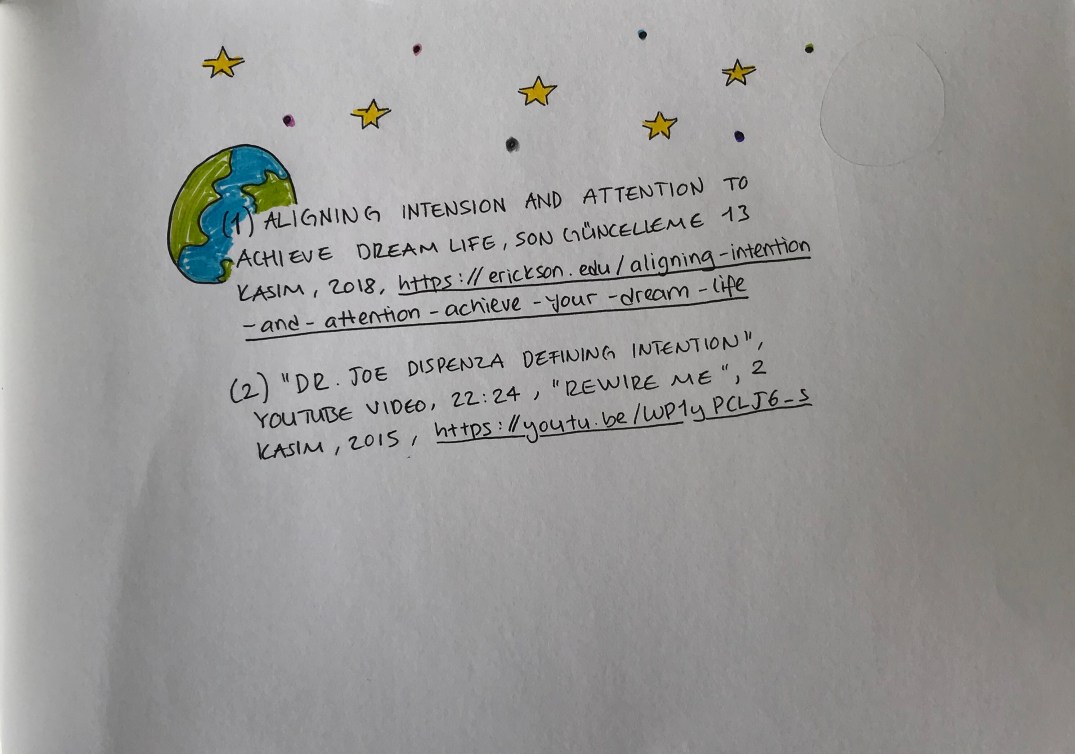 (1) ALIGNING INTENSION AND ATTENTION TO
ACHIEVE DREAM LIFE, SON GÜNCELLEME 13
KASIM, 2018, https://erickson.edu/aligning-intention
-and-attention-achieve-your-dream-life
(2) "DR. JOE DISPENZA DEFINING INTENTION",
YOUTUBE VIDEO, 22:24, "REWIRE ME", 2
KASIM, 2015, https://youtu.be/WP1yPCLJ6_s